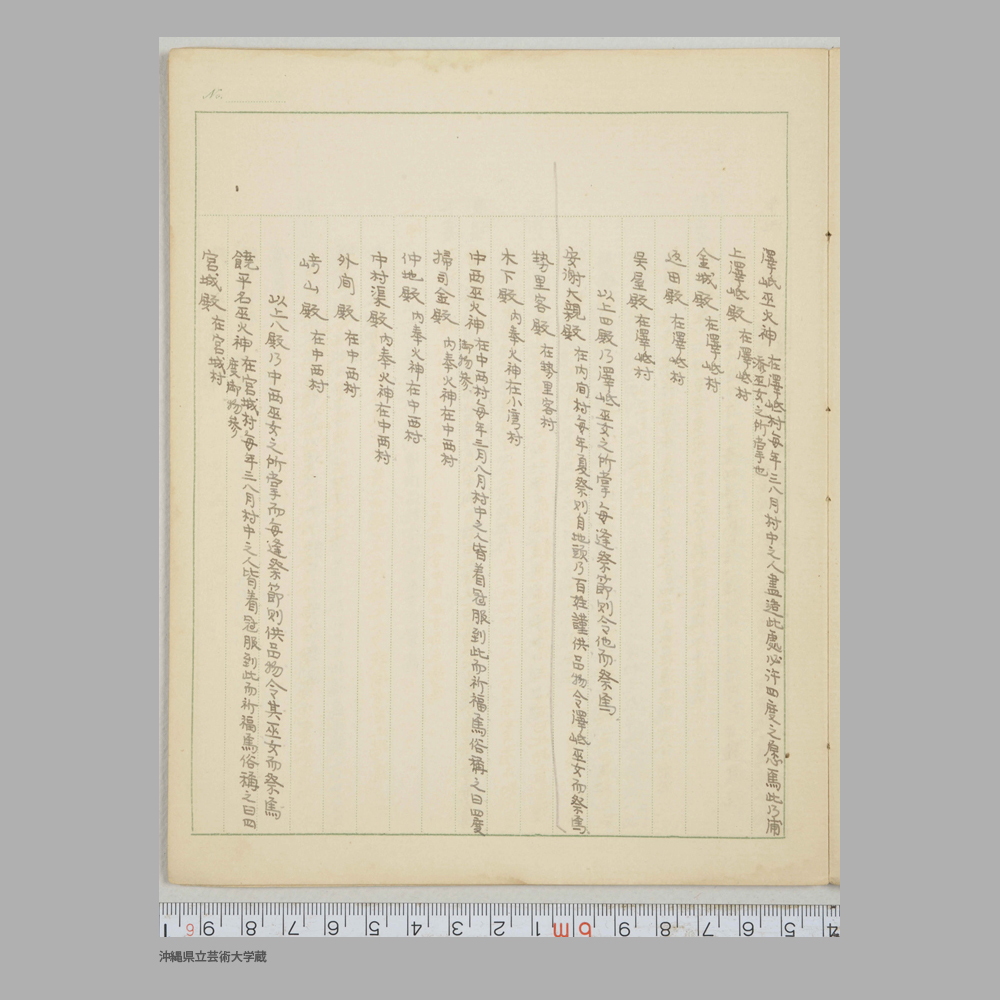 No.
澤岻巫火神 在澤岻村毎年三八月村中之人盡造此處必許四度之願焉此乃甫
添巫女之所掌也
上澤岻殿 在澤岻村
金城殿 在澤岻村
返田殿 在澤岻村
呉屋殿 在澤岻村
以上四殿乃澤岻巫女之所掌毎逢祭節則令他而祭焉
安謝大親殿 在内間村毎年夏祭則自地頭乃百姓謹供品物令澤岻巫女而祭焉
勢里客殿 在勢里客村
木下殿 内奉火神在小湾村
中西巫火神 在中西村毎年三月八月村中之人皆着冠服到此而祈福焉俗稱之曰四度
御物参
掃司金殿 内奉火神在中西村
仲地殿 内奉火神在中西村
中村渠殿 内奉火神在中西村
外間殿 在中西村
崎山殿 在中西村
以上八殿乃中西巫女之所掌而毎逢祭節則供品物令其巫女而祭焉
饒平名巫火神 在宮城村毎年三八月村中之人皆着冠服到此而祈福焉俗稱之曰四
度御物参
宮城殿 在宮城村
沖縄県立芸術大学蔵
1 6 9 8 7 6 5 4 3 2 1 6m 9 8 7 6 5 4